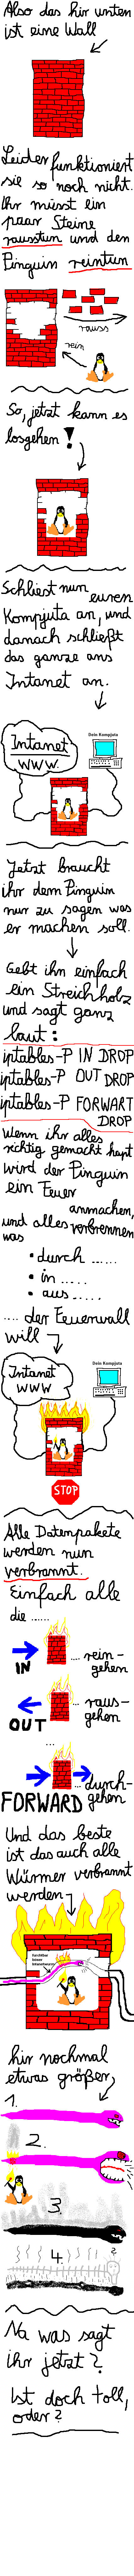 Also das hir unten
ist eine Wall
Leider funktioniert
sie so noch nicht.
Ihr müsst ein
paar Steine
raustun und den
Pinguin reintun
rauss
rein
So, jetzt kann es
losgehen!
Schliest nun euren
Kompjuta an, und
danach schließt
das ganze ans
Intanet an.
Dein Kompjuta
Intanet
WWW.
Jetzt braucht
ihr dem Pinguin
nur zu sagen was
er machen soll.
Gebt ihn einfach
ein Streichholz
und sagt ganz
laut:
iptables-P IN DROP
iptables-P OUT DROP
iptables-P FORWART
DROP
wenn ihr alles
richtig gemacht hapt
wird der Pinguin
ein Feuer
anmachen,
und alles verbrennen
was
• durch ......
• in .....
• aus .....
.... der Feuerwall
will
Dein Kompjuta
Intanet
WWW
STOP
Alle Datenpakete
werden nun
verbrannt.
Einfach alle
die ......
IN
.... rein-
gehen
OUT
... raus-
gehen
...
FORWARD
... durch-
gehen
Und das beste
ist das auch alle
Würmer verbrannt
werden
hir nochmal
etwas größer,
1.
2.
3.
4.
?
Na was sagt
ihr jetzt?
Ist doch toll,
oder?